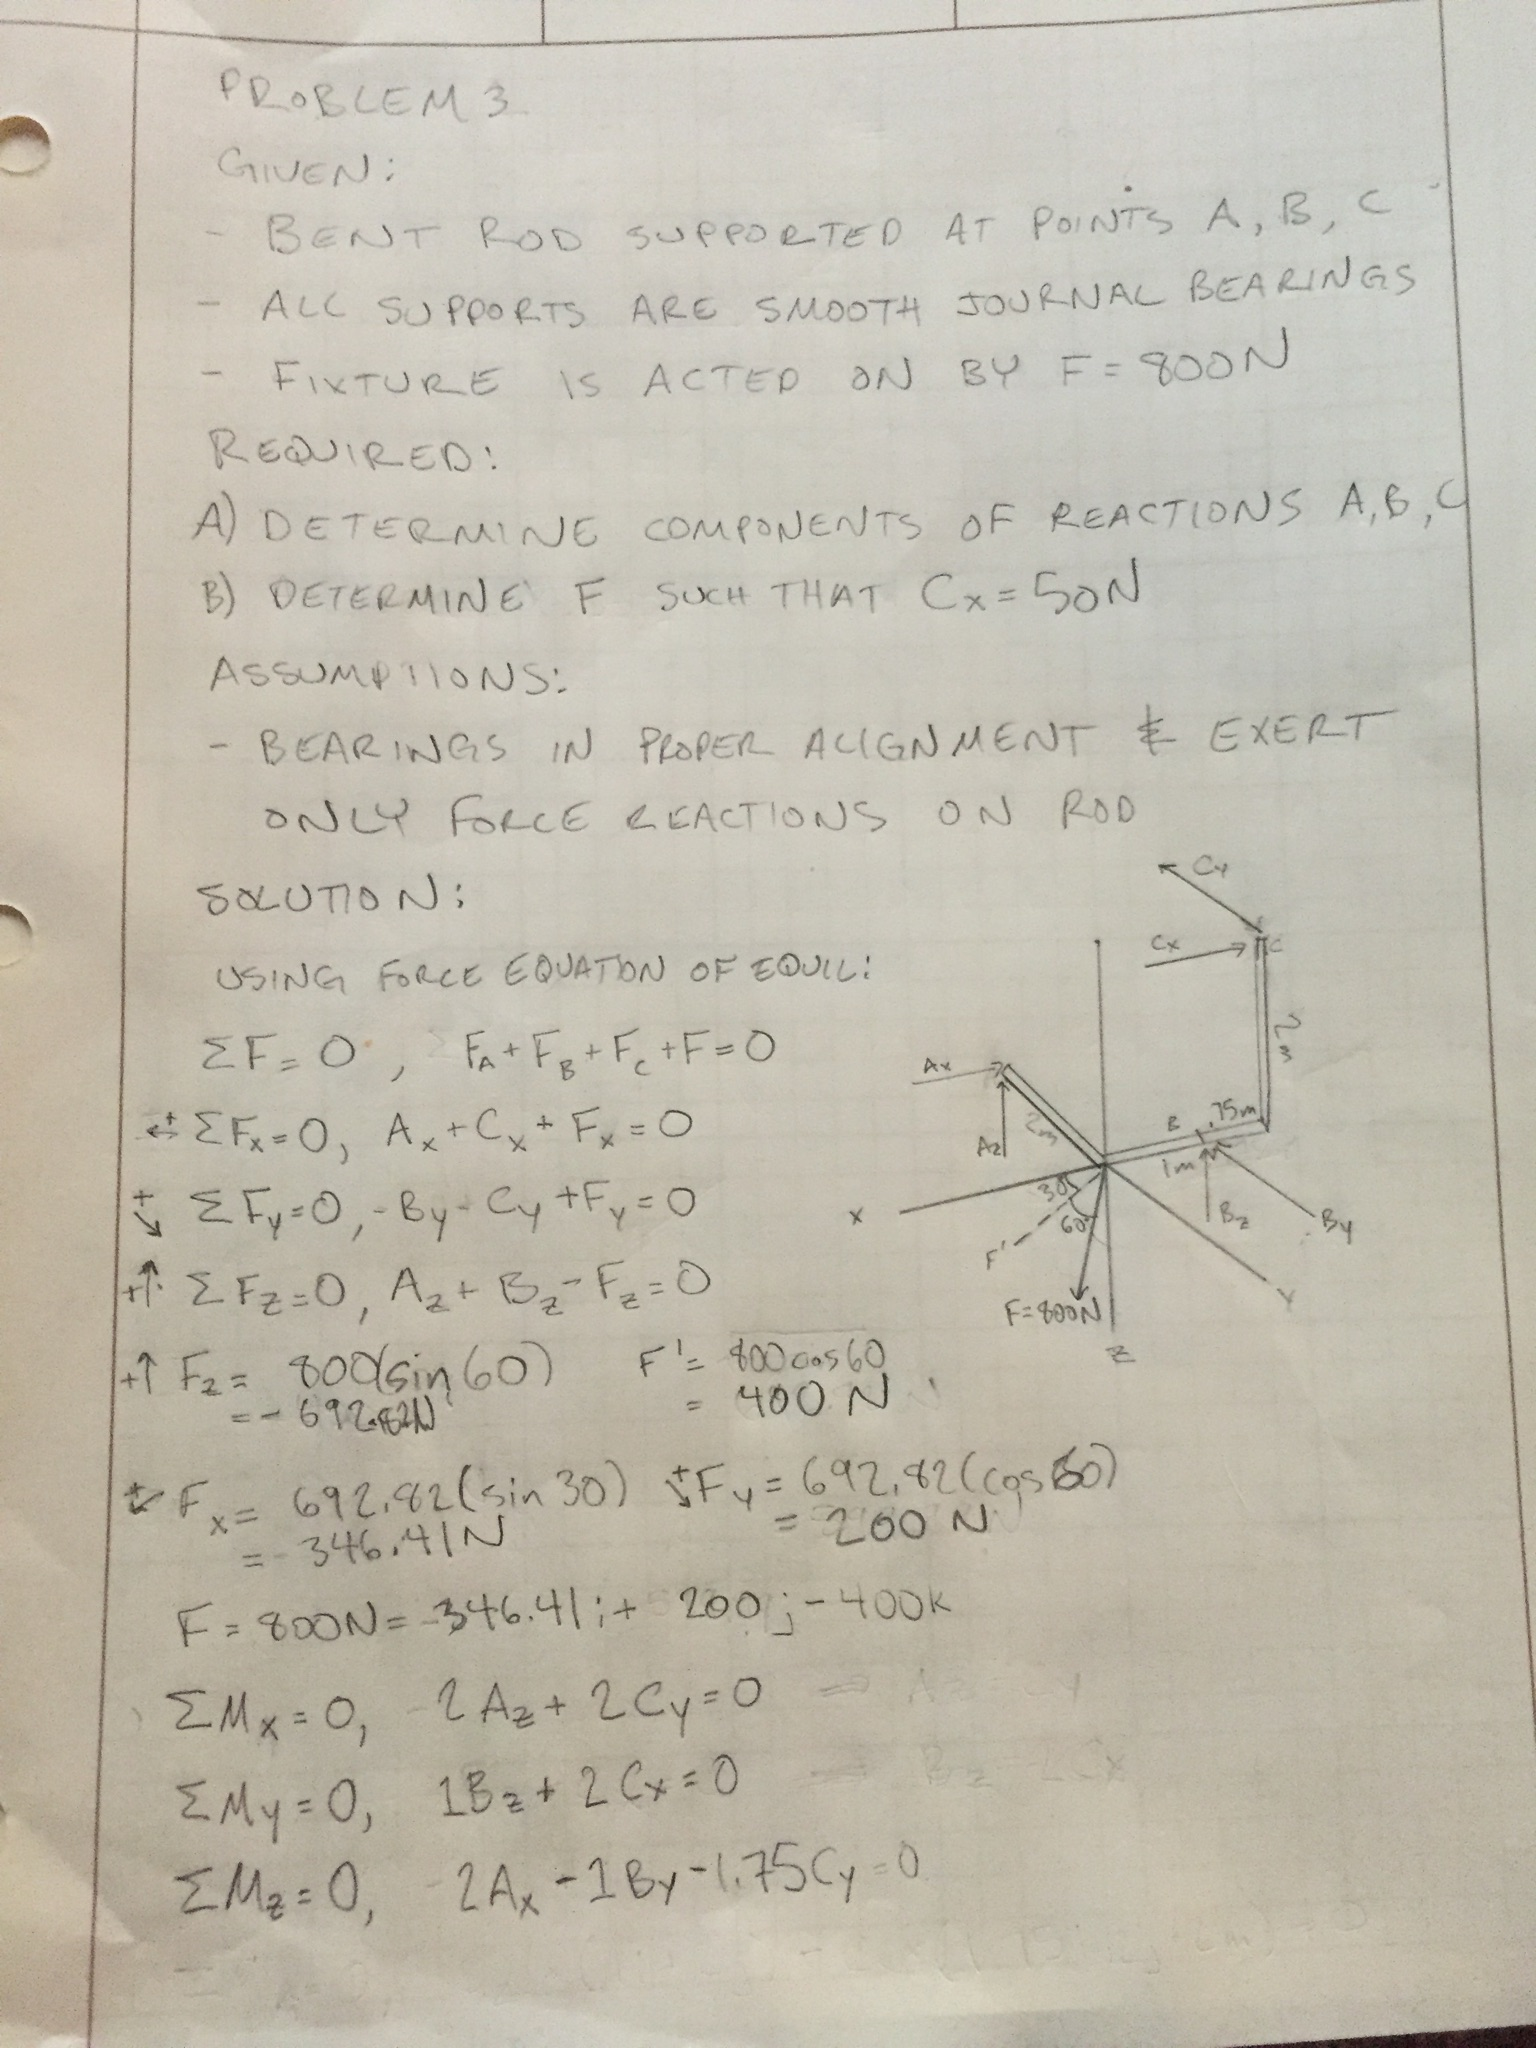 PROBLEM 3
GIVEN:
- BENT ROD SUPPORTED AT POINTS A, B, C
- ALL SUPPORTS ARE SMOOTH JOURNAL BEARINGS
- FIXTURE IS ACTED ON BY F = 800N
REQUIRED:
A) DETERMINE COMPONENTS OF REACTIONS A, B, C
B) DETERMINE F SUCH THAT Cx = 50N
ASSUMPTIONS:
- BEARINGS IN PROPER ALIGNMENT & EXERT
ONLY FORCE REACTIONS ON ROD
SOLUTION:
USING FORCE EQUATION OF EQUIL:
ΣF = 0, FA + FB + FC + F = 0
ΣFx = 0, Ax + Cx + Fx = 0
ΣFy = 0, -By - Cy + Fy = 0
+↑ ΣFz = 0, Az + Bz - Fz = 0
+↑ Fz = 800(sin 60) F' = 800 cos 60
= -692.82N = 400 N
Fx = 692.82(sin 30) Fy = 692.82(cos 60)
= -346.41N = 200 N
F = 800N = -346.41i + 200j - 400k
ΣMx = 0, -2Az + 2Cy = 0
ΣMy = 0, 1Bz + 2Cx = 0
ΣMz = 0, -2Ax - 1By - 1.75Cy = 0
Cy
Cx
C
2m
Ax
Az
2m
B
.75m
1m
Bz
By
X
30°
60°
F'
F=800N
Y
Z